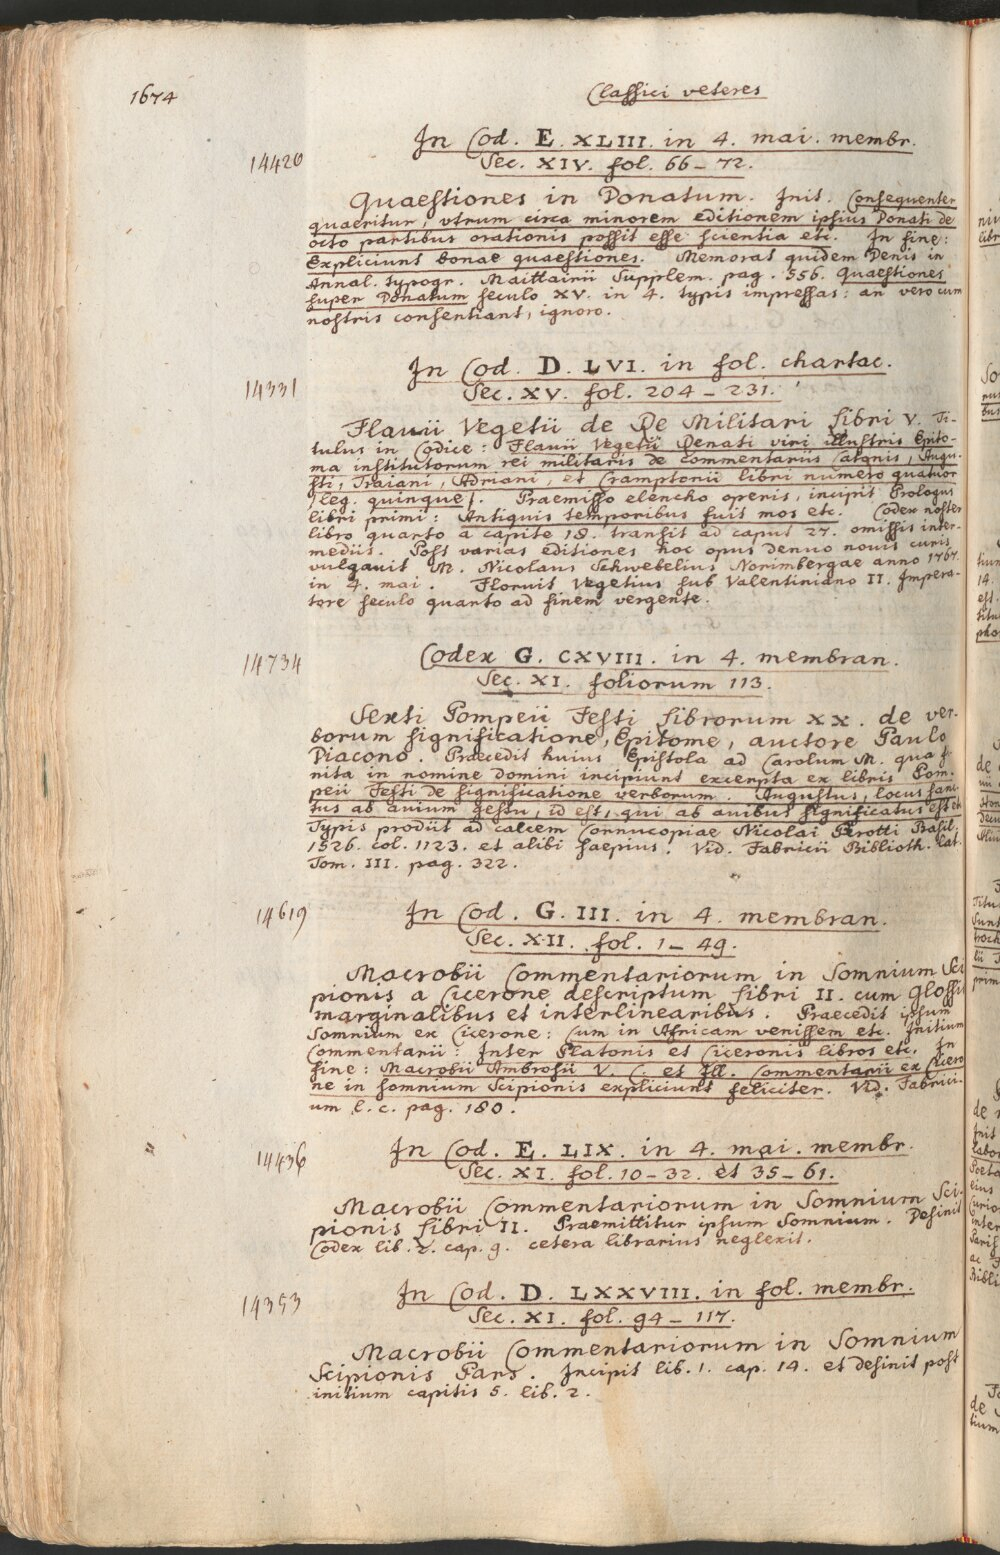 1674
Classici veteres
In Cod. E. XLIII. in 4. mai. membr.
14420
Sec. XIV. fol. 66–72.
Quaestiones in Donatum. Init. Consequenter
quaeritur, vtrum circa minorem editionem ipsius Donati de
octo partibus orationis possit esse scientia etc. In fine:
Expliciunt bonae quaestiones. Memorat quidem Denis in
Annal. typogr. Maittairii Supplem. pag. 556. Quaestiones
super Donatum seculo XV. in 4. typis impressas: an vero cum
nostris consentiant, ignoro.
In Cod. D. LVI. in fol. chartac.
14331
Sec. XV. fol. 204–231.
Flauii Vegetii de Re Militari libri V. Ti-
tulus in Codice: Flauii Vegetii Renati viri illustris Epito-
ma institutorum rei militaris de commentariis Catonis, Augu-
sti, Traiani, Adriani, et Cramptonii libri numero quatuor
(leg. quinque). Praemisso elencho operis, incipit Prologus
libri primi: Antiquis temporibus fuit mos etc. Codex noster
libro quarto a capite 18. transit ad caput 27. omissis inter-
mediis. Post varias editiones hoc opus denuo nouis curis
vulgauit M. Nicolaus Schwebelius Norimbergae anno 1767.
in 4. mai. Floruit Vegetius sub Valentiniano II. Impera-
tore seculo quarto ad finem vergente.
Codex G. CXVIII. in 4. membran.
14734
Sec. XI. foliorum 113.
Sexti Pompeii Festi librorum XX. de ver-
borum significatione, Epitome, auctore Paulo
Diacono. Praecedit huius Epistola ad Carolum M. qua fi-
nita in nomine domini incipiunt excerpta ex libris Pom-
peii Festi de significatione verborum. Augustus, locus sanc-
tus ab auium gestu, id est, qui ab auibus significatus est etc
Typis prodiit ad calcem Cornucopiae Nicolai Perotti Basil.
1526. col. 1123. et alibi saepius. Vid. Fabricii Biblioth. Lat.
Tom. III. pag. 322.
In Cod. G. III. in 4. membran.
14619
Sec. XII. fol. 1–49.
Macrobii Commentariorum in Somnium Sci
pionis a Cicerone descriptum libri II. cum glossis
marginalibus et interlinearibus. Praecedit ipsum
Somnium ex Cicerone: Cum in Africam venissem etc. Initium
Commentarii: Inter Platonis et Ciceronis libros etc. In
fine: Macrobii Ambrosii V. C. et Ill. Commentarii ex Cicero
ne in somnium Scipionis expliciunt feliciter. Vid. Fabrici-
um l. c. pag. 180.
In Cod. E. LIX. in 4. mai. membr.
14436
Sec. XI. fol. 10–32. et 35–61.
Macrobii Commentariorum in Somnium Sci-
pionis libri II. Praemittitur ipsum Somnium. Desinit
Codex lib. 2. cap. 9. cetera librarius neglexit.
In Cod. D. LXXVIII. in fol. membr.
14353
Sec. XI. fol. 94–117.
Macrobii Commentariorum in Somnium
Scipionis Pars. Incipit lib. 1. cap. 14. et desinit post
initium capitis 5. lib. 2.